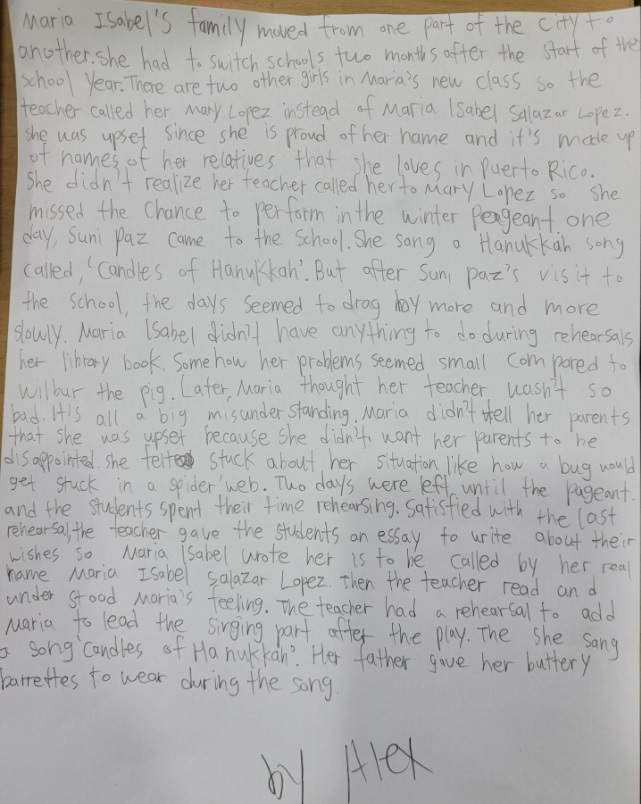 Maria Isabel's family moved from one part of the city to
another. She had to switch schools two months after the start of the
school year. There are two other girls in Maria's new class so the
teacher called her Mary Lopez instead of Maria Isabel Salazar Lopez.
she was upset since she is proud of her name and it's made up
of names of her relatives that she loves in Puerto Rico.
She didn't realize her teacher called her to Mary Lopez so she
missed the chance to perform in the winter Pageant. one
day, Suni Paz came to the school. She sang a Hanukkah song
called, 'Candles of Hanukkah'. But after Suni paz's visit to
the school, the days seemed to drag by more and more
slowly. Maria Isabel didn't have anything to do during rehearsals
her library book. Somehow her problems seemed small compared to
wilbur the pig. Later, Maria thought her teacher wasn't so
bad. It's all a big misunderstanding. Maria didn't tell her parents
that she was upset because she didn't want her parents to be
disappointed. she felt stuck about her situation like how a bug would
get stuck in a spider web. Two days were left until the pageant.
and the students spent their time rehearsing. Satisfied with the last
rehearsal, the teacher gave the students an essay to write about their
wishes so Maria Isabel wrote her is to be called by her real
name Maria Isabel Salazar Lopez. Then the teacher read and
under stood Maria's feeling. The teacher had a rehearsal to add
Maria to lead the singing part after the play. The she sang
a song 'candles of Hanukkah'. Her father gave her buttery
barrettes to wear during the song.
by Alex